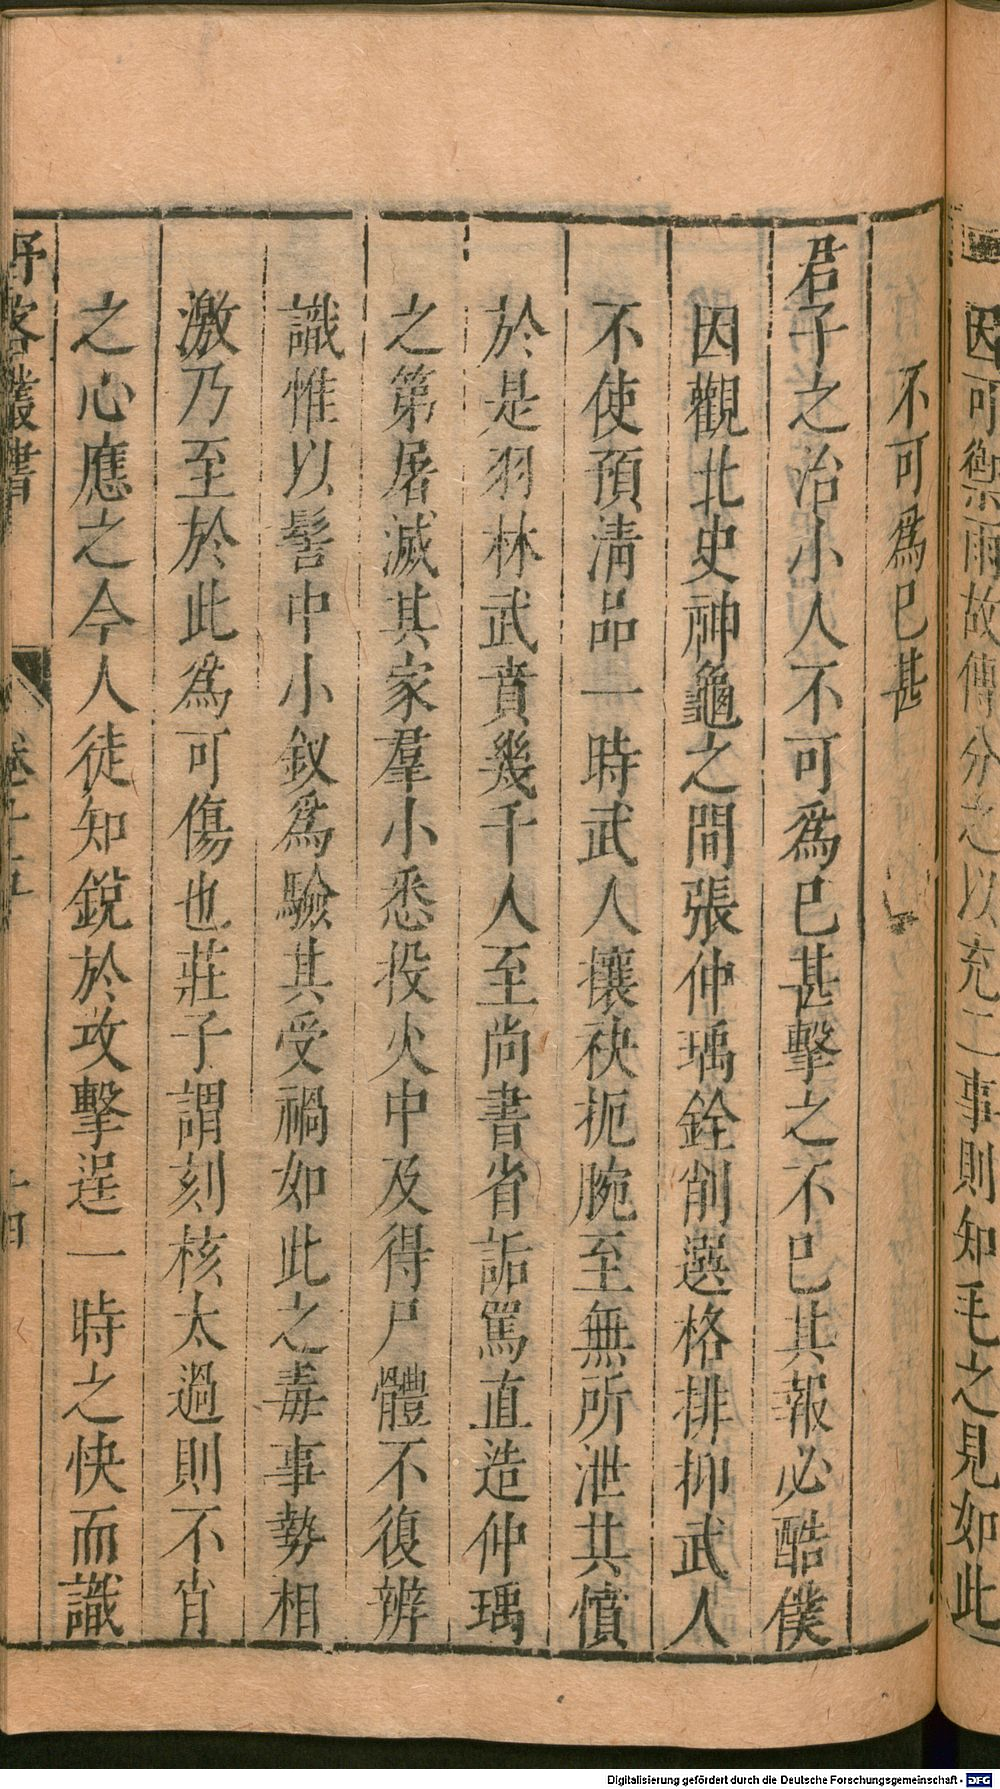 因可禦雨故傳分之以充二事則知毛之見如此
不可爲已甚
君子之治小人不可爲已甚擊之不已其報必酷僕
因觀北史神龜之間張仲瑀銓削選格排抑武人
不使預淸品一時武人攘袂扼腕至無所泄其憤
於是羽林武賁幾千人至尚書省詬罵直造仲瑀
之第屠滅其家羣小悉投火中及得尸體不復辨
識惟以髻中小釵爲驗其受禍如此之毒事勢相
激乃至於此爲可傷也莊子謂刻核太過則不肖
之心應之今人徒知銳於攻擊逞一時之快而識
野客叢書 卷十五 十四
Digitalisierung gefördert durch die Deutsche Forschungsgemeinschaft - DFG